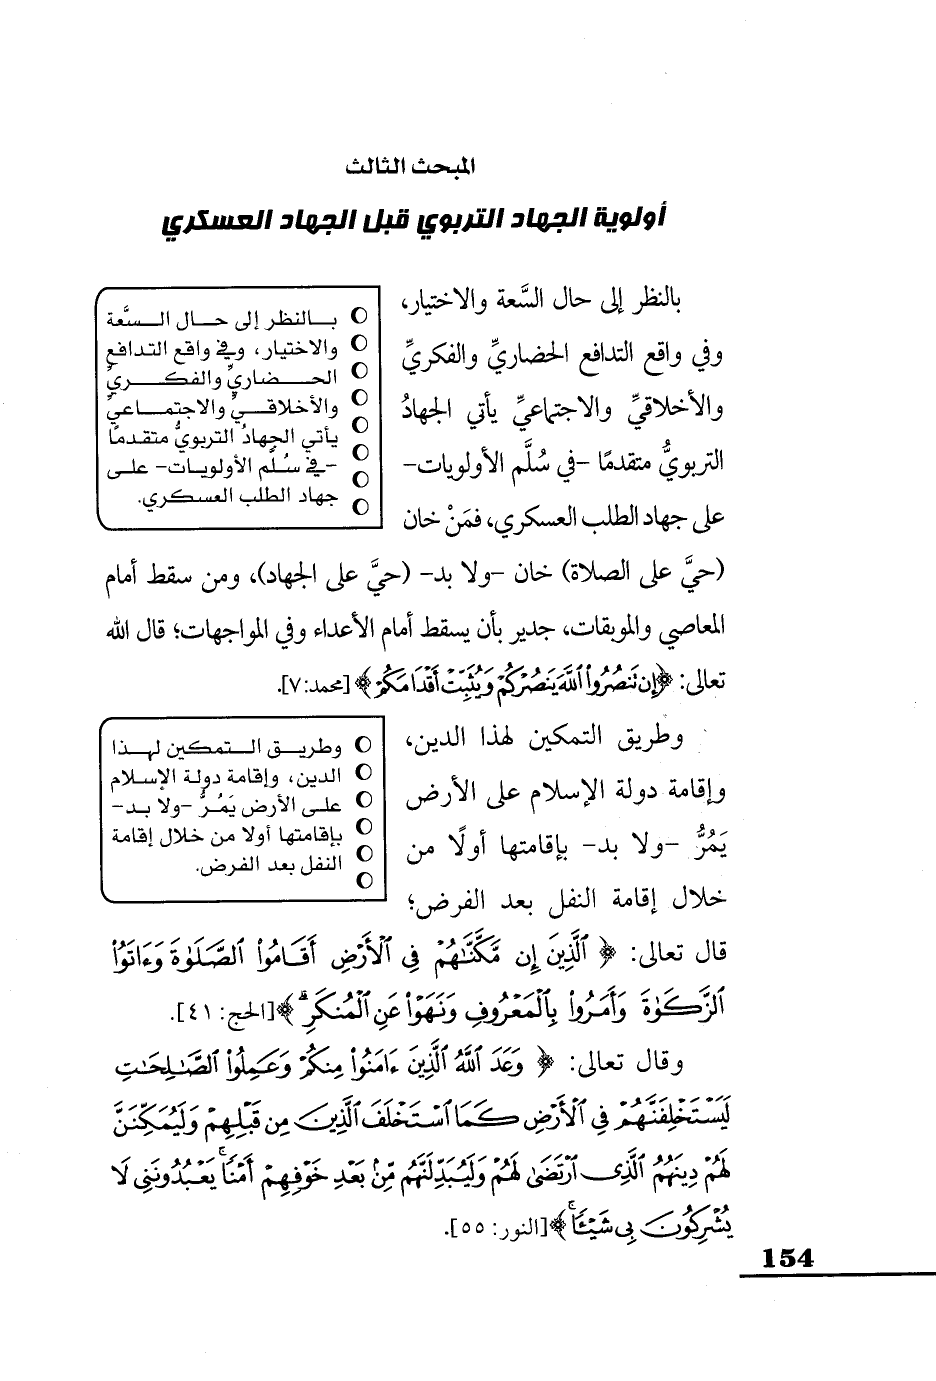 المبحث الثالث
أولوية الجهاد التربوي قبل الجهاد العسكري
بالنظر إلى حال السَّعة والاختيار،
وفي واقع التدافع الحضاريِّ والفكريِّ
والأخلاقيِّ والاجتماعيِّ يأتي الجهادُ
التربويُّ متقدمًا –في سُلَّم الأولويات–
على جهاد الطلب العسكري، فمَنْ خان
بالنظر إلى حال السَّعة
والاختيار، وفي واقع التدافع
الحضاريِّ والفكريِّ
والأخلاقيِّ والاجتماعيِّ
يأتي الجهادُ التربويُّ متقدمًا
–في سُلَّم الأولويات– على
جهاد الطلب العسكري.
(حيَّ على الصلاة) خان –ولا بد– (حيَّ على الجهاد)، ومن سقط أمام
المعاصي والموبقات، جدير بأن يسقط أمام الأعداء وفي المواجهات؛ قال الله
تعالى: ﴿إِن تَنصُرُواْ ٱللَّهَ يَنصُرْكُمْ وَيُثَبِّتْ أَقْدَامَكُمْ﴾ [محمد:٧].
وطريق التمكين لهذا الدين،
وإقامة دولة الإسلام على الأرض
يَمُرُّ –ولا بد– بإقامتها أولًا من
خلال إقامة النفل بعد الفرض؛
وطريق التمكين لهذا
الدين، وإقامة دولة الإسلام
على الأرض يَمُرُّ –ولا بد–
بإقامتها أولا من خلال إقامة
النفل بعد الفرض.
قال تعالى: ﴿ ٱلَّذِينَ إِن مَّكَّنَّٰهُمْ فِي ٱلْأَرْضِ أَقَامُواْ ٱلصَّلَوٰةَ وَءَاتَوُاْ
ٱلزَّكَوٰةَ وَأَمَرُواْ بِٱلْمَعْرُوفِ وَنَهَوْاْ عَنِ ٱلْمُنكَرِ ۗ ﴾[الحج: ٤١].
وقال تعالى: ﴿ وَعَدَ ٱللَّهُ ٱلَّذِينَ ءَامَنُواْ مِنكُمْ وَعَمِلُواْ ٱلصَّٰلِحَٰتِ
لَيَسْتَخْلِفَنَّهُمْ فِي ٱلْأَرْضِ كَمَا ٱسْتَخْلَفَ ٱلَّذِينَ مِن قَبْلِهِمْ وَلَيُمَكِّنَنَّ
لَهُمْ دِينَهُمُ ٱلَّذِي ٱرْتَضَىٰ لَهُمْ وَلَيُبَدِّلَنَّهُم مِّنۢ بَعْدِ خَوْفِهِمْ أَمْنًا ۚ يَعْبُدُونَنِي لَا
يُشْرِكُونَ بِي شَيْـًٔا ۚ ﴾[النور: ٥٥].
154